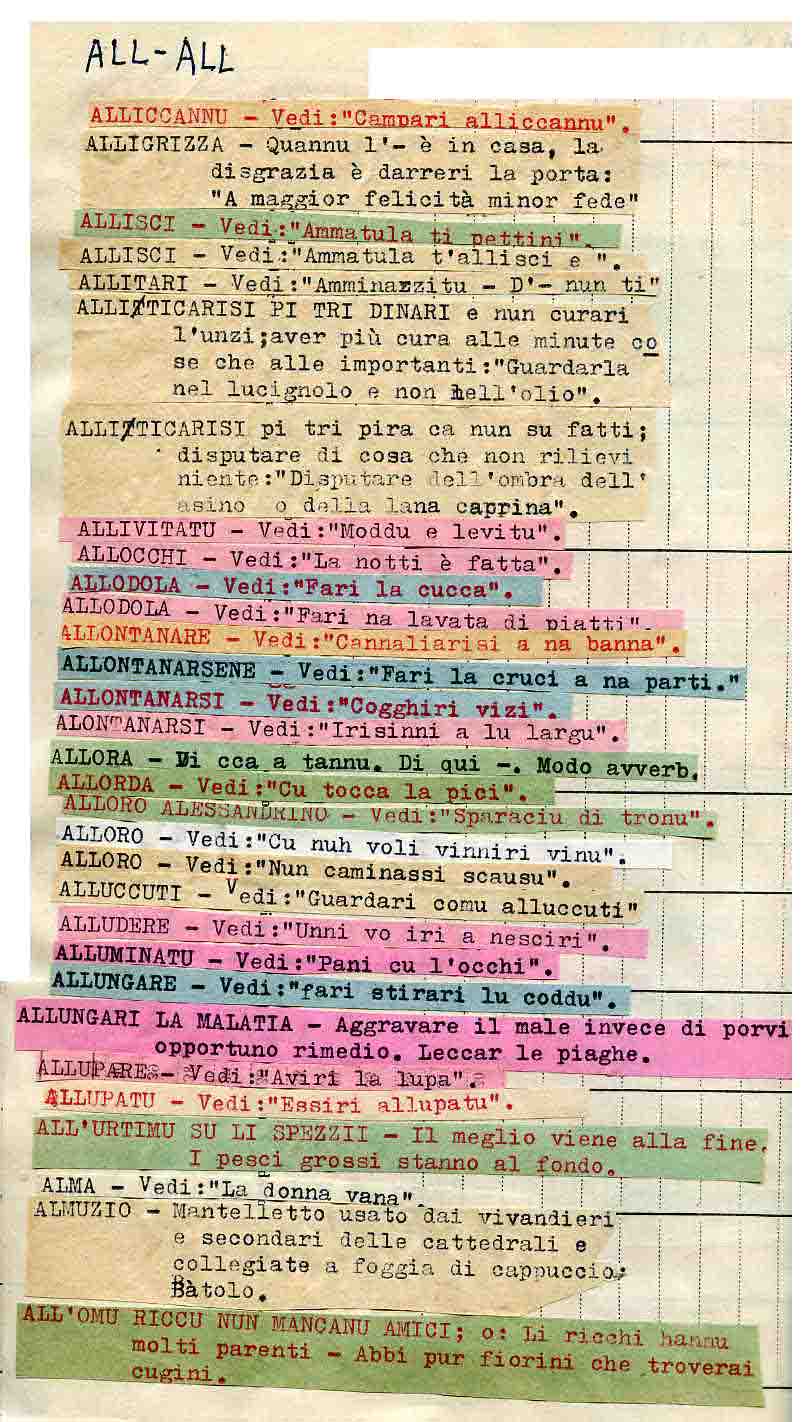 ALL-ALL
ALLICCANNU - Vedi:"Campari alliccannu".
ALLIGRIZZA - Quannu l'- è in casa, la
disgrazia è darreri la porta:
"A maggior felicità minor fede"
ALLISCI - Vedi:"Ammatula ti pettini".
ALLISCI - Vedi:"Ammatula t'allisci e ".
ALLITARI - Vedi:"Amminazzitu - D'- nun ti"
ALLITTICARISI PI TRI DINARI e nun curari
l'unzi;aver più cura alle minute co
se che alle importanti:"Guardarla
nel lucignolo e non nell'olio".
ALLITTICARISI pi tri pira ca nun su fatti;
disputare di cosa che non rilievi
niente:"Disputare dell'ombra dell'
asino o della lana caprina".
ALLIVITATU - Vedi:"Moddu e levitu".
ALLOCCHI - Vedi:"La notti è fatta".
ALLODOLA - Vedi:"Fari la cucca".
ALLODOLA - Vedi:"Fari na lavata di piatti".
ALLONTANARE - Vedi:"Cannaliarisi a na banna".
ALLONTANARSENE - Vedi:"Fari la cruci a na parti."
ALLONTANARSI - Vedi:"Cogghiri vizi".
ALONTANARSI - Vedi:"Irisinni a lu largu".
ALLORA - Di cca a tannu. Di qui -. Modo avverb.
ALLORDA - Vedi:"Cu tocca la pici".
ALLORO ALESSANDRINO - Vedi:"Sparaciu di tronu".
ALLORO - Vedi:"Cu nuh voli vinniri vinu".
ALLORO - Vedi:"Nun caminassi scausu".
ALLUCCUTI - Vedi:"Guardari comu alluccuti"
ALLUDERE - Vedi:"Unni vo iri a nesciri".
ALLUMINATU - Vedi:"Pani cu l'occhi".
ALLUNGARE - Vedi:"fari stirari lu coddu".
ALLUNGARI LA MALATIA - Aggravare il male invece di porvi
opportuno rimedio. Leccar le piaghe.
ALLUPARE - Vedi:"Aviri la lupa".
ALLUPATU - Vedi:"Essiri allupatu".
ALL'URTIMU SU LI SPEZZII - Il meglio viene alla fine.
I pesci grossi stanno al fondo.
ALMA - Vedi:"La donna vana"
ALMUZIO - Mantelletto usato dai vivandieri
e secondari delle cattedrali e
collegiate a foggia di cappuccio;
Bàtolo.
ALL'OMU RICCU NUN MANCANU AMICI; o: Li ricchi hannu
molti parenti - Abbi pur fiorini che troverai
cugini.